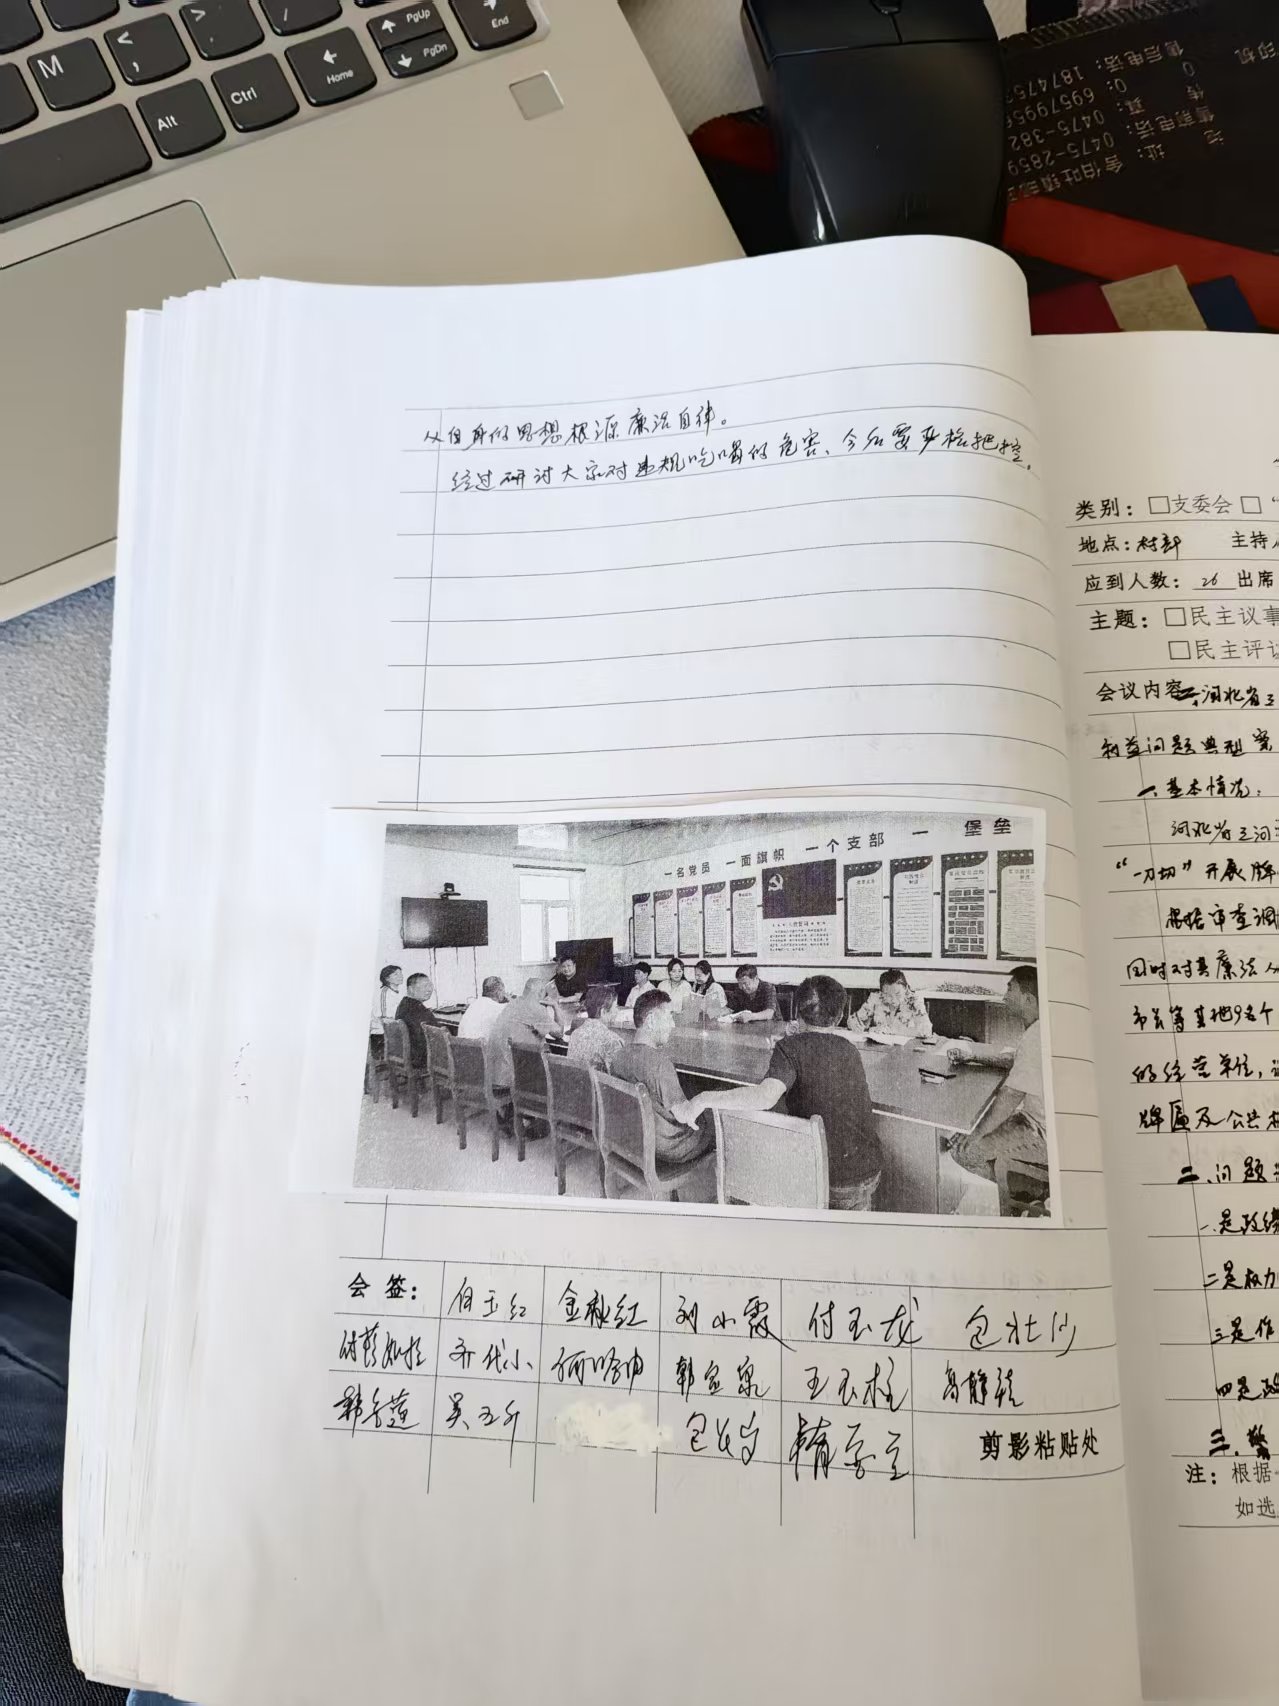 M
<
,
Alt
Ctrl
Home
PgUp
PgDn
End
印机
售后电话：1874757
传真：0475-382
售前电话：0475-2859
地址：舍伯吐镇
从自身的思想根源廉洁自律。
经过研讨大家对违规吃喝的危害、今后要严格把控。
一名党员 一面旗帜 一个支部 一 堡垒
会签： 白玉红 金秋红 刘小霞 付玉龙 包壮
齐代小 韩宝泉 王玉柱
韩香莲 吴五斤
剪影粘贴处
类别：□支委会 □“
地点：村部 主持
应到人数：26 出席
主题：□民主议事
□民主评议
会议内容 河北省三
利益问题典型案
一、基本情况：
河北省三河
“一刀切”开展牌
根据审查调
同时对其廉洁
市长等其他9名个
的经营单位，
牌匾及公共
二、问题
一是政绩
二是权力
三是作
四是政
三、警
注：根据
如选